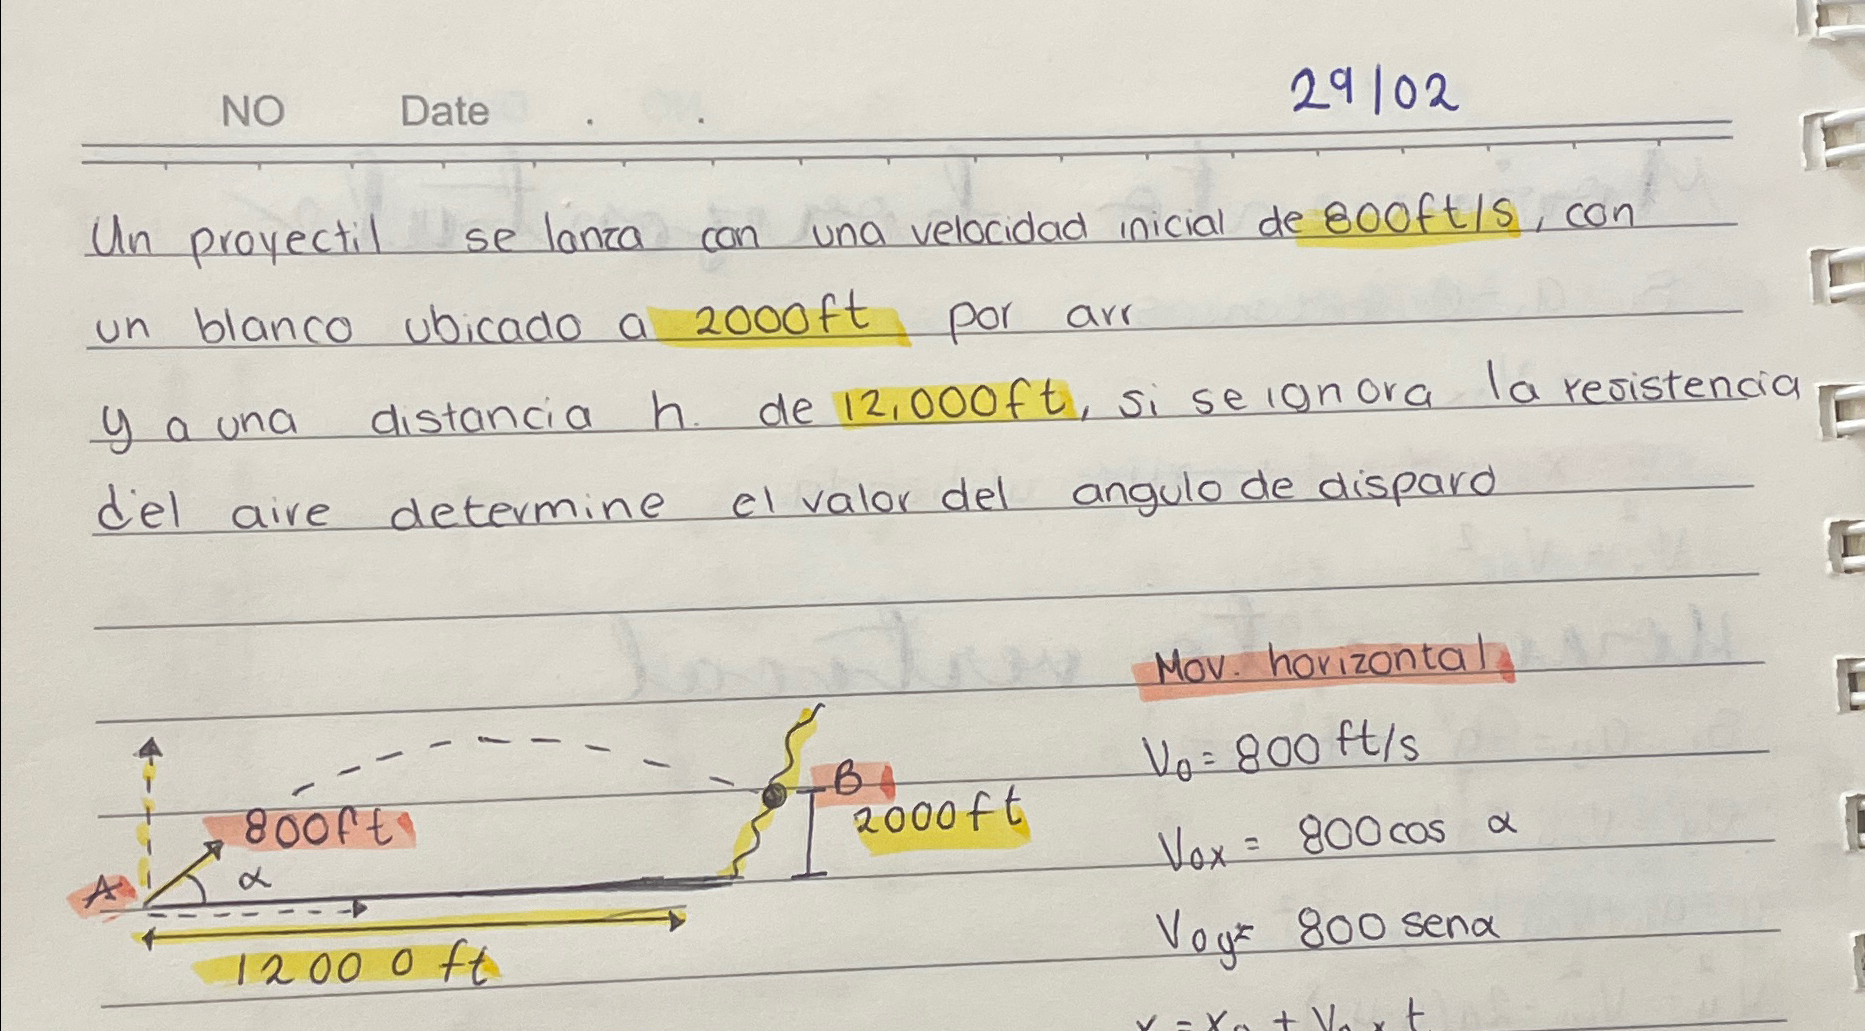 29/02
NO Date . .
Un proyectil se lanza con una velocidad inicial de 800ft/s, con
un blanco ubicado a 2000ft por arr
y a una distancia h. de 12,000ft, si se ignora la resistencia
del aire determine el valor del angulo de disparo
Mov. horizontal
V₀ = 800 ft/s
V₀x = 800 cos α
V₀y = 800 sen α
x = x₀ + V₀x t
800ft
A
α
B
2000ft
12000 ft